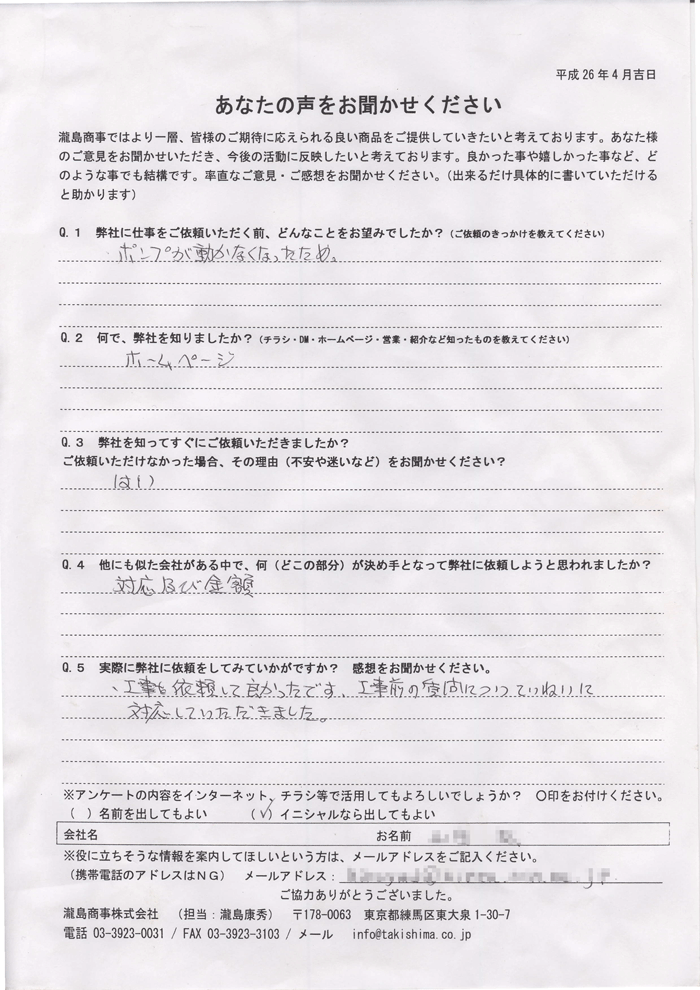 平成26年4月吉日
あなたの声をお聞かせください
瀧島商事ではより一層、皆様のご期待に応えられる良い商品をご提供していきたいと考えております。あなた様
のご意見をお聞かせいただき、今後の活動に反映したいと考えております。良かった事や嬉しかった事など、ど
のような事でも結構です。率直なご意見・ご感想をお聞かせください。（出来るだけ具体的に書いていただける
と助かります）
Q.1 弊社に仕事をご依頼いただく前、どんなことをお望みでしたか？（ご依頼のきっかけを教えてください）
ポンプが動かなくなったため。
Q.2 何で、弊社を知りましたか？（チラシ・DM・ホームページ・営業・紹介など知ったものを教えてください）
ホームページ
Q.3 弊社を知ってすぐにご依頼いただきましたか？
ご依頼いただけなかった場合、その理由（不安や迷いなど）をお聞かせください？
はい
Q.4 他にも似た会社がある中で、何（どこの部分）が決め手となって弊社に依頼しようと思われましたか？
対応及び金額
Q.5 実際に弊社に依頼をしてみていかがですか？ 感想をお聞かせください。
、工事も依頼して良かったです、工事前の質問についてていねいに
対応していただきました。
※アンケートの内容をインターネット、チラシ等で活用してもよろしいでしょうか？ ○印をお付けください。
（ ）名前を出してもよい （✓）イニシャルなら出してもよい
会社名 お名前
※役に立ちそうな情報を案内してほしいという方は、メールアドレスをご記入ください。
（携帯電話のアドレスはNG） メールアドレス：
ご協力ありがとうございました。
瀧島商事株式会社 （担当：瀧島康秀） 〒178-0063 東京都練馬区東大泉1-30-7
電話 03-3923-0031 / FAX 03-3923-3103 / メール info@takishima.co.jp